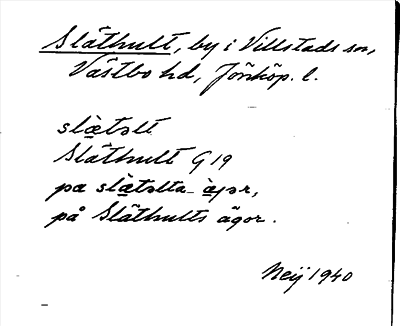 Släthult, by i Villstads sn,
Västbo hd, Jönköp. l.
slætəlt
Släthult G19
pa slætəlta- æjər,
på Släthults ägor.
Neij 1940